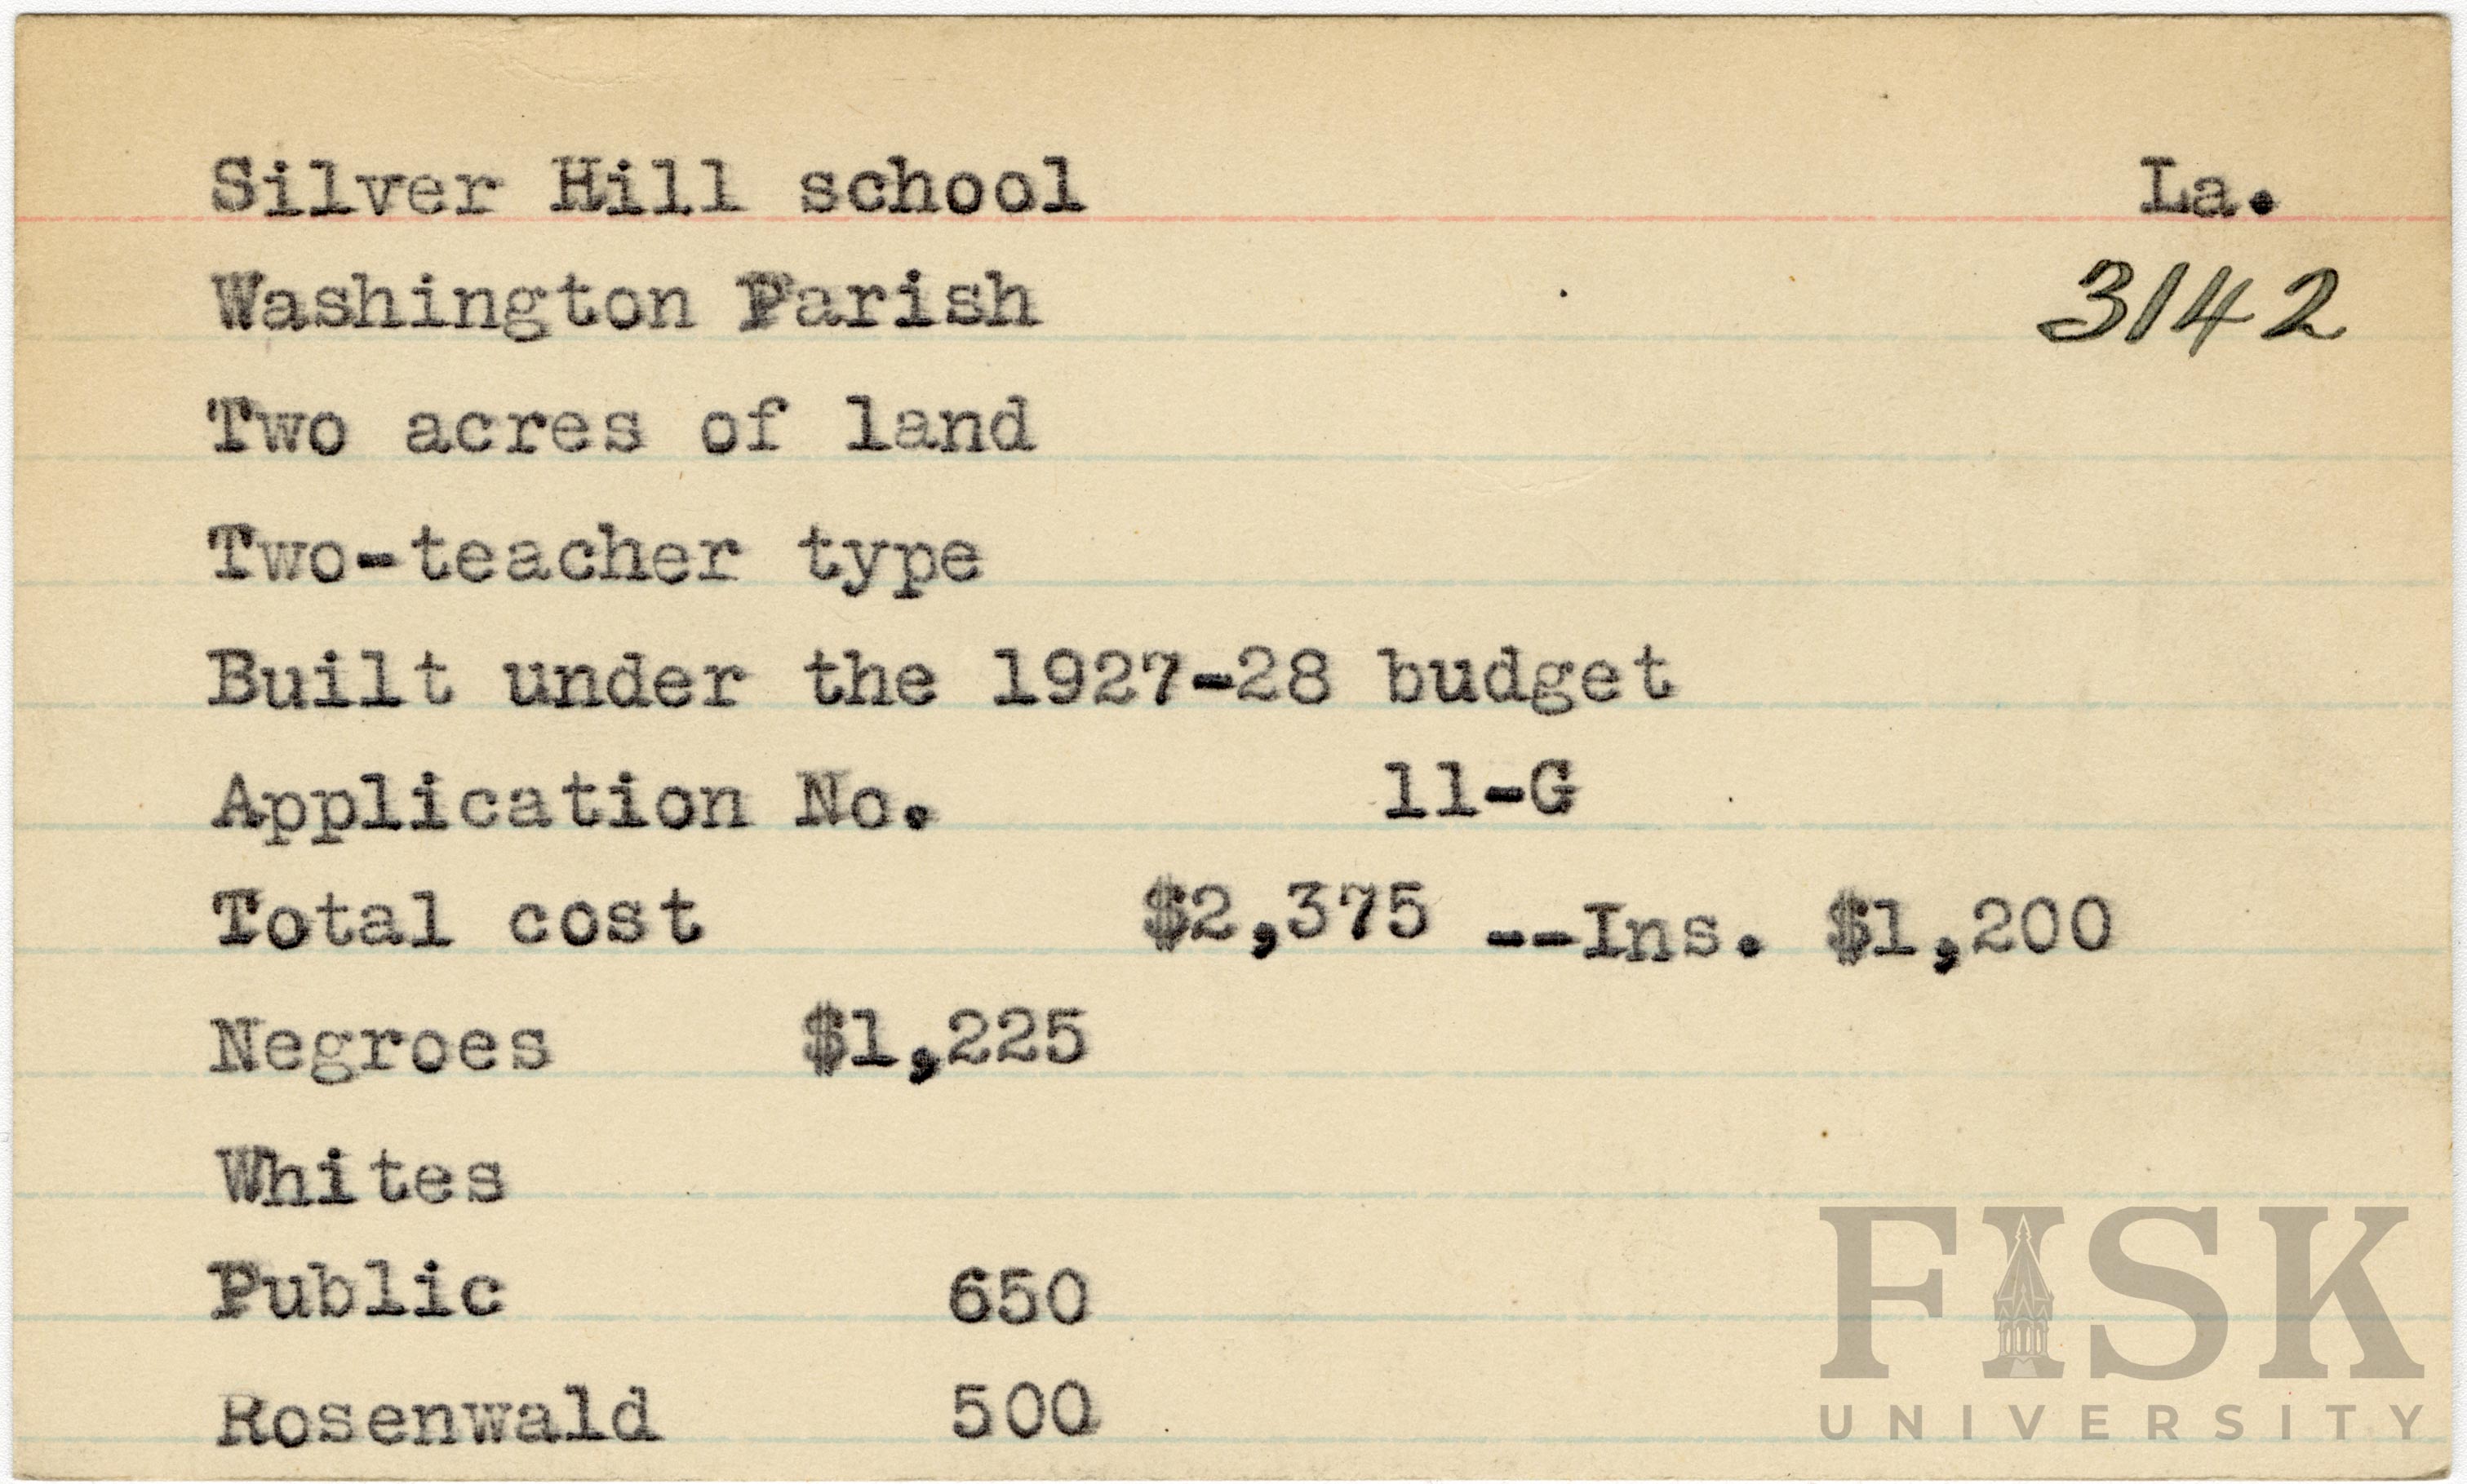 Silver Hill school La.
Washington Parish 3142
Two acres of land
Two-teacher type
Built under the 1927-28 budget
Application No. 11-G
Total cost $2,375 --Ins. $1,200
Negroes $1,225
Whites
Public 650
Rosenwald 500
FISK
UNIVERSITY